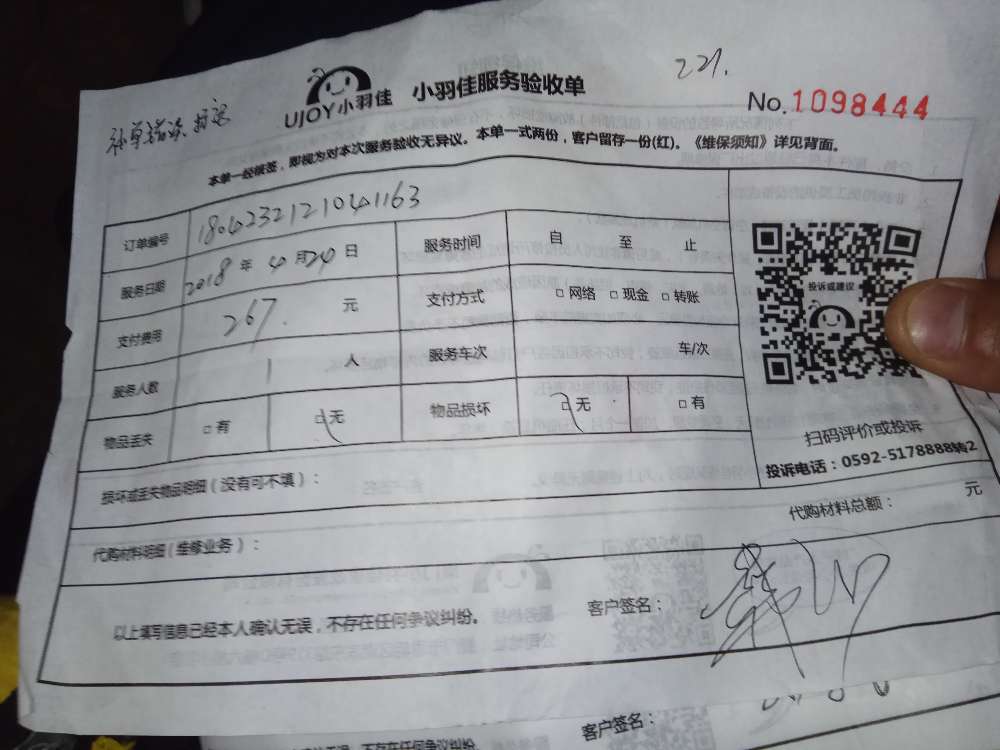 221.
UJOY小羽佳 小羽佳服务验收单
No.1098444
本单一经核签,即视为对本次服务验收无异议。本单一式两份,客户留存一份(红)。《维保须知》详见背面。
订单编号 180423212104041163
服务日期 2018 年 4 月 24 日 服务时间 自 至 止
支付费用 267. 元 支付方式 □ 网络 □ 现金 □ 转账
服务人数 1 人 服务车次 车/次
物品丢失 □ 有 □ 无 物品损坏 □ 无 □ 有
投诉或建议
扫码评价或投诉
投诉电话:0592-5178888转2
损坏或丢失物品明细(没有可不填):
代购材料明细(维修业务): 代购材料总额: 元
以上填写信息已经本人确认无误,不存在任何争议纠纷。 客户签名:
客户签名:
不存在任何争议纠纷。